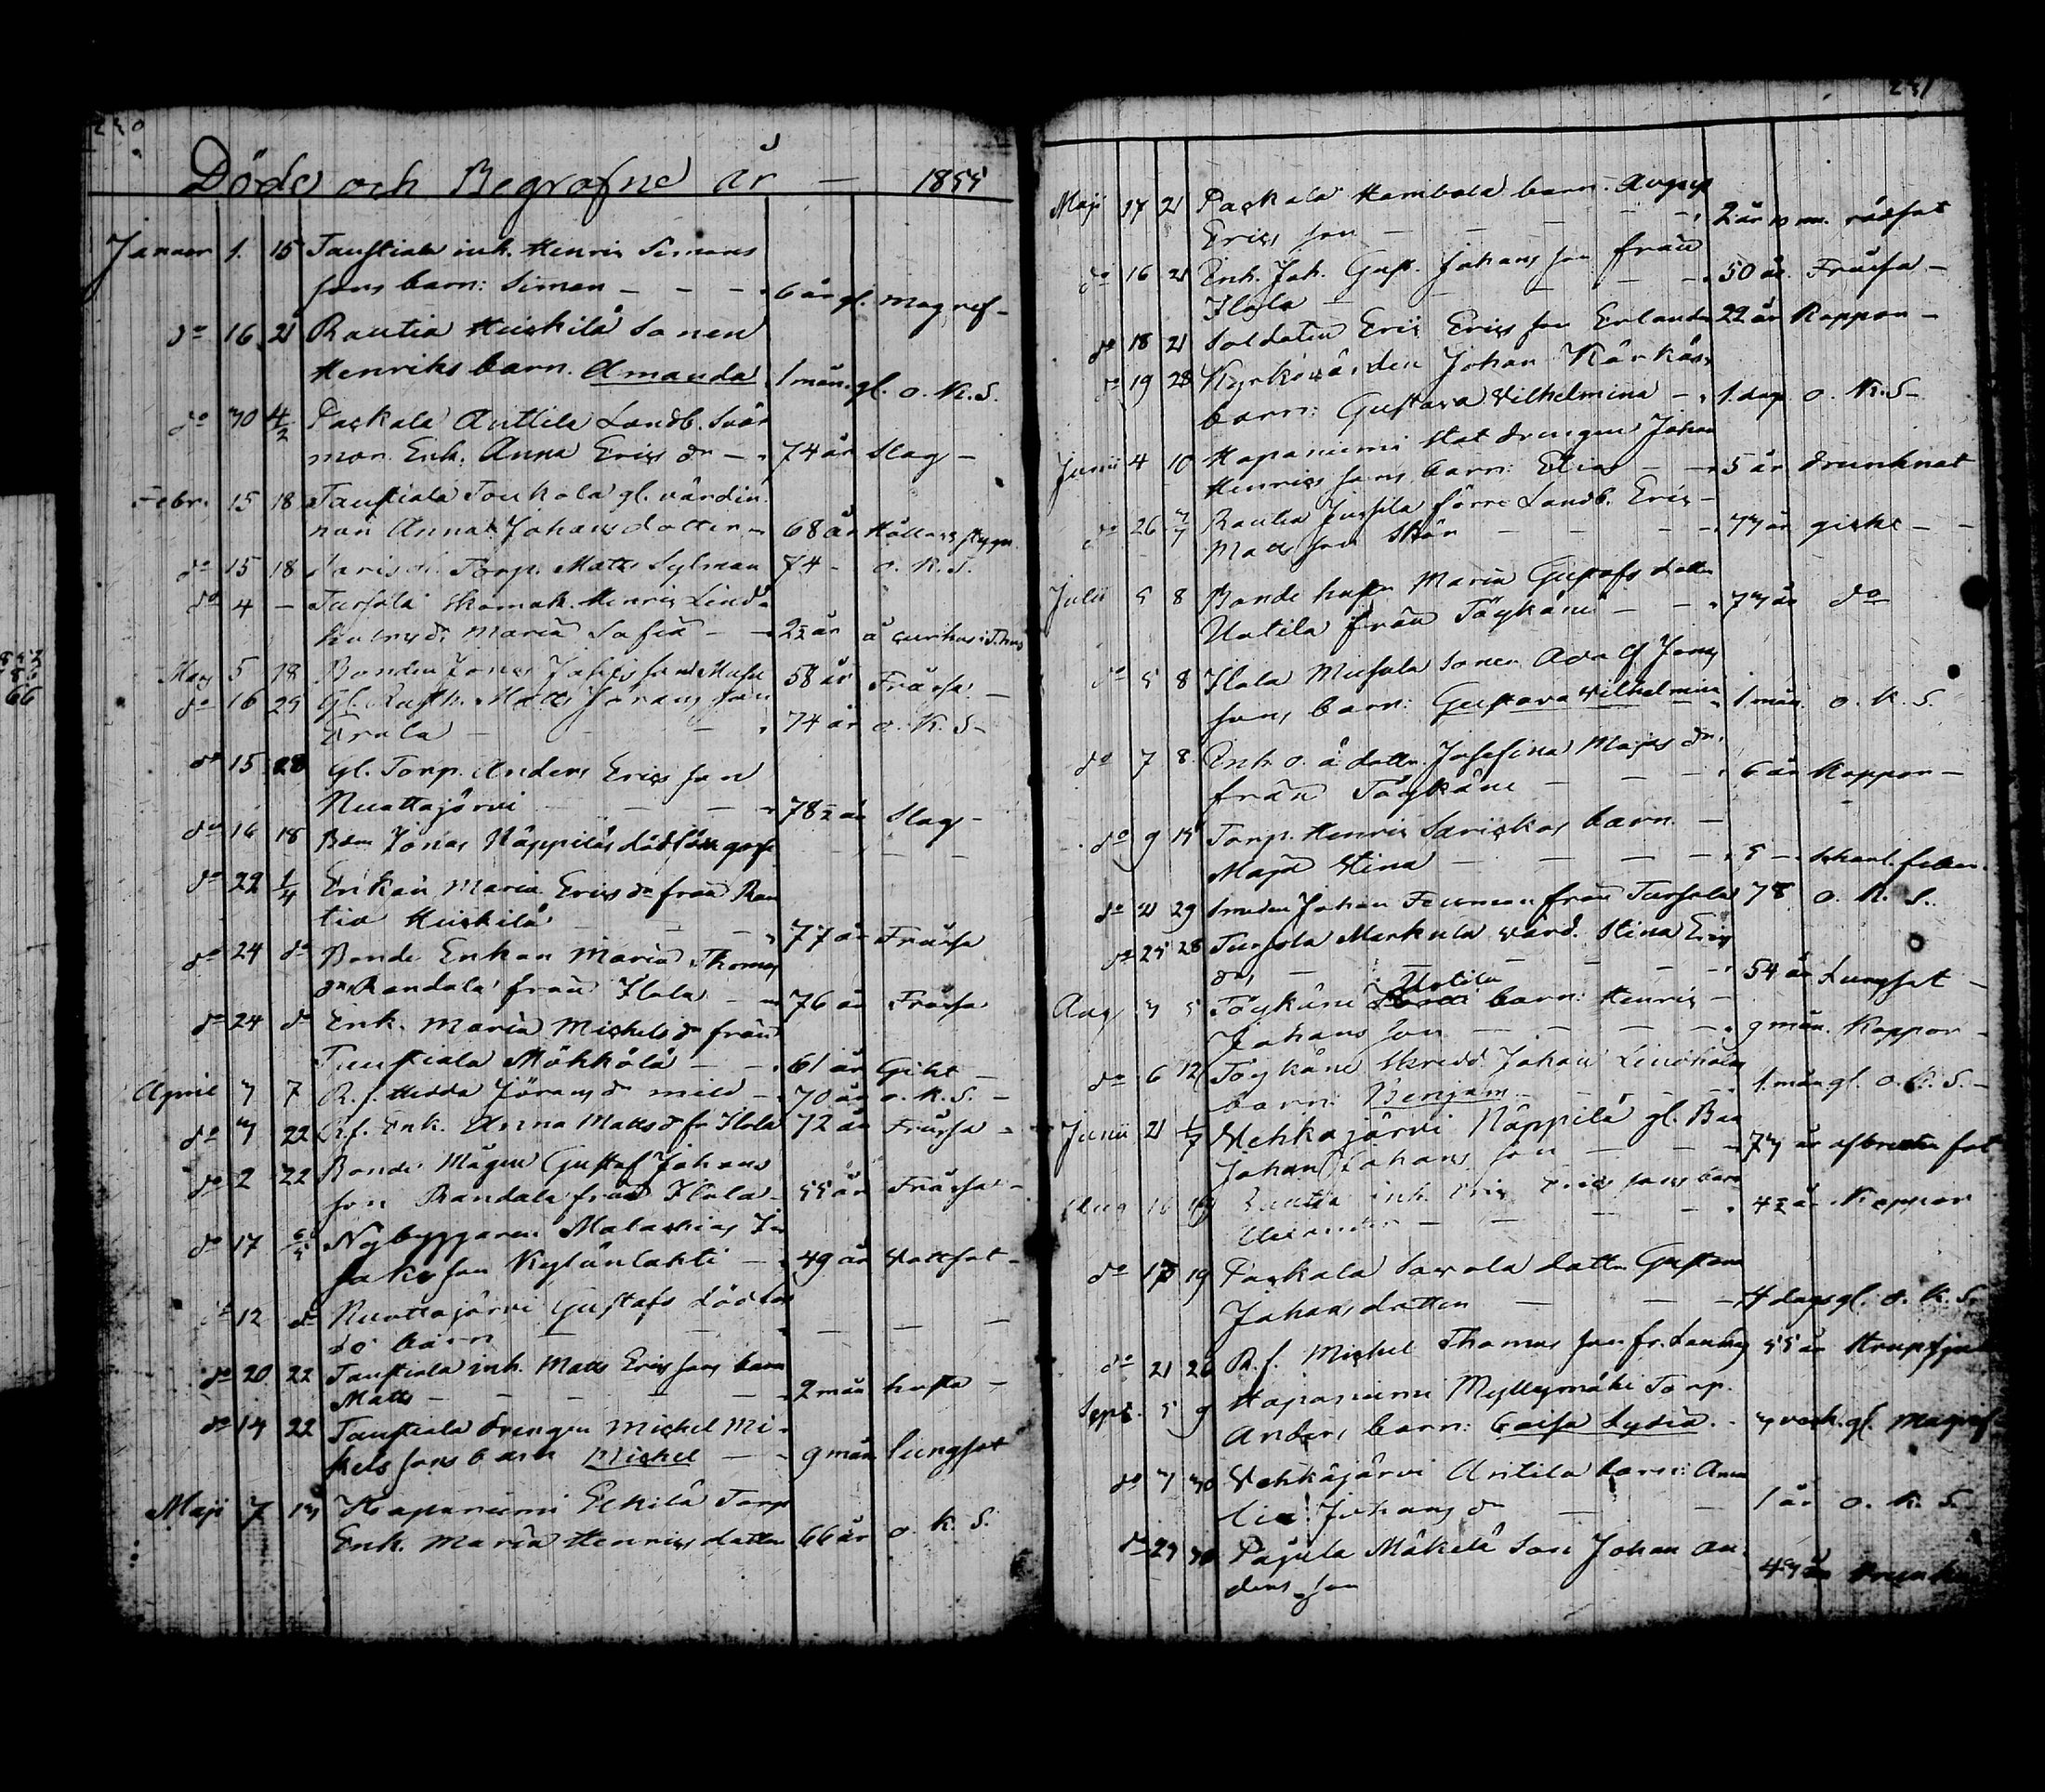 230
Döde och Begrafne år — 1855
Januar 1. 15 Taustiala inh. Henric Simons
sons barn: Simon — — — 6 år gl. magref —
do 16 21 Rautia Heickilä Sonen
Henriks barn. Amanda 1 mån. gl. o. K. S.
do 30 4/2 Packala Anttila Landb. Svär
mor Enk. Anna Erics dr — 74 år Slag —
Febr. 15 18 Taustiala Toukola gl. värdin
nan Anna Johansdotter — 68 år Håll o. stygn
do 15 18 Torp. Matts Sylman 74 — o. K. S.
do 4 — Tursola Skomak. Henric Lind
Maria Sofia — 2½ år
Mars 5 18 Bonden Jonas 58 år Fråssa —
do 16 29 Gl. Rusth. Matts Jörans son
74 år o. K. S —
do 15 28 gl. Torp. Anders Erics son
Nuottajärvi — — 78½ år Slag —
do 16 18 Bdn Jonas Näppiläs dödfödde gosse — — —
do 29 1/4 Enkan Maria Erics dr från Rau
tia Heickilä — — 77 år Fråssa
do 24 do Bonde Enkan Maria Thomas
dr Randala från Ilola — 76 år Fråssa
do 24 do Enk. Maria Michels dr från
Taustiala Möhkölä — — 61 år Gikt —
April 3 7 R. f. Hedda Jörans dr mild — 70 år o. K. S. —
do 3 22 Rf. Enk. Anna Matts dr fr. Ilola 72 år Fråssa —
do 2 22 Bonde Mågen Gustaf Johans
son Randala från Ilola — 55 år Fråssa —
do 17 6/5 Nybyggaren Malachias Isa
saks son Kylänlahti — 49 år Vattsot —
12 do Nuottajärvi Gustafs dödföd
do barn — — — — —
do 20 22 Taustiala inh. Matts Erics sons barn
Matts — — — — 2 mån hosta —
do 14 22 Taustiala drengen Michel Mi-
kels sons barn Michel — — 9 mån lungsot
Maji 7 13 Haponiemi Eckilä Torp
Enk. Maria Henricsdotter 66 år o. K. S.
231
Maji 17 21 Packala Hambola barn. August
Erics son — — — 2 år 10 m. rödsot
do 16 21 Enk. Joh. Gust. Johans son från
Ilola — — — 50 år Fråssa —
do 18 21 Soldaten Eric Erics son Erland 22 år Koppor —
do 19 28 Kyrkovärden Johan Kärkäs
barn: Gustava Vilhelmina — 1 dag o. K. S —
Junii 4 10 Haponiemi Stat drengen Johan
Henrics sons barn: Elias — 5 år drunknat
do 26 3/7 Rautia Jussila förre Landb. Eric
Mats son Skön — — 73 år gickt —
Julii 5 8 Bonde hustr. Maria Gustafs dotter
Uotila från Töykänä — — 73 år do
do 5 8 Ilola Musola Sonen Adolf Jons
sons barn: Gustava Wilhelmina 1 mån. o. K. S.
do 7 8 Enk. o. ä. dotter Josefina Majas dr.
från Töykäne — — 6 år Koppor —
do 9 15 Torp. Henric Sarickos barn —
Maja Stina — — — 5 — Skarl. feber.
do 21 29 Smeden Johan från Tursola 78 o. K. S.
do 25 28 Tursola Markula värd. Stina Erics
dr, — — — — 54 år Lungsot —
Aug 3 5 Töykäne Uotila barn: Henric —
Johans son — — — 9 mån. Koppor —
do 6 12 Töykäne Skredd. Johan Lindholm
barn: Benjam — — 1 mån gl. o. K. S. —
Junii 21 1/7 Vehkajärvi Näppilä gl. Bon
Johan Johans son — — 73 år afbruten fot
Aug 16 19 Rautia inh. Eric Erics sons barn
— — — 4½ år Koppor
do 15 19 Packala Savola dotter Gustava
Johansdotter — — — 4 dags gl. o. K. S.
do 21 26 R. f. Michel Thomas son fr. 55 år
Sept. 5 9 Haponiemi Myllymäki Torp.
Anders barn: Caisa Lydia — 3 veck. gl. magref —
do 3 30 Vehkajärvi Antila barn: Ama
lia Johans dr — — 1 år o. K. S.
do 29 30 Päjälä Mäkelä Son Johan An-
ders son 43 år